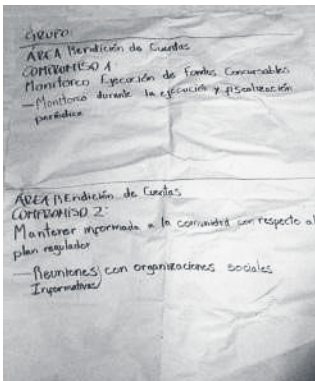 GRUPO:
ÁREA Rendición de Cuentas
COMPROMISO 1:
Monitoreo Ejecución de Fondos Concursables
— Monitoreo durante la ejecución y fiscalización
periódica
ÁREA REndición de Cuentas
COMPROMISO 2:
Mantener informada a la comunidad con respecto al
plan regulador
— Reuniones con organizaciones sociales
Informativas